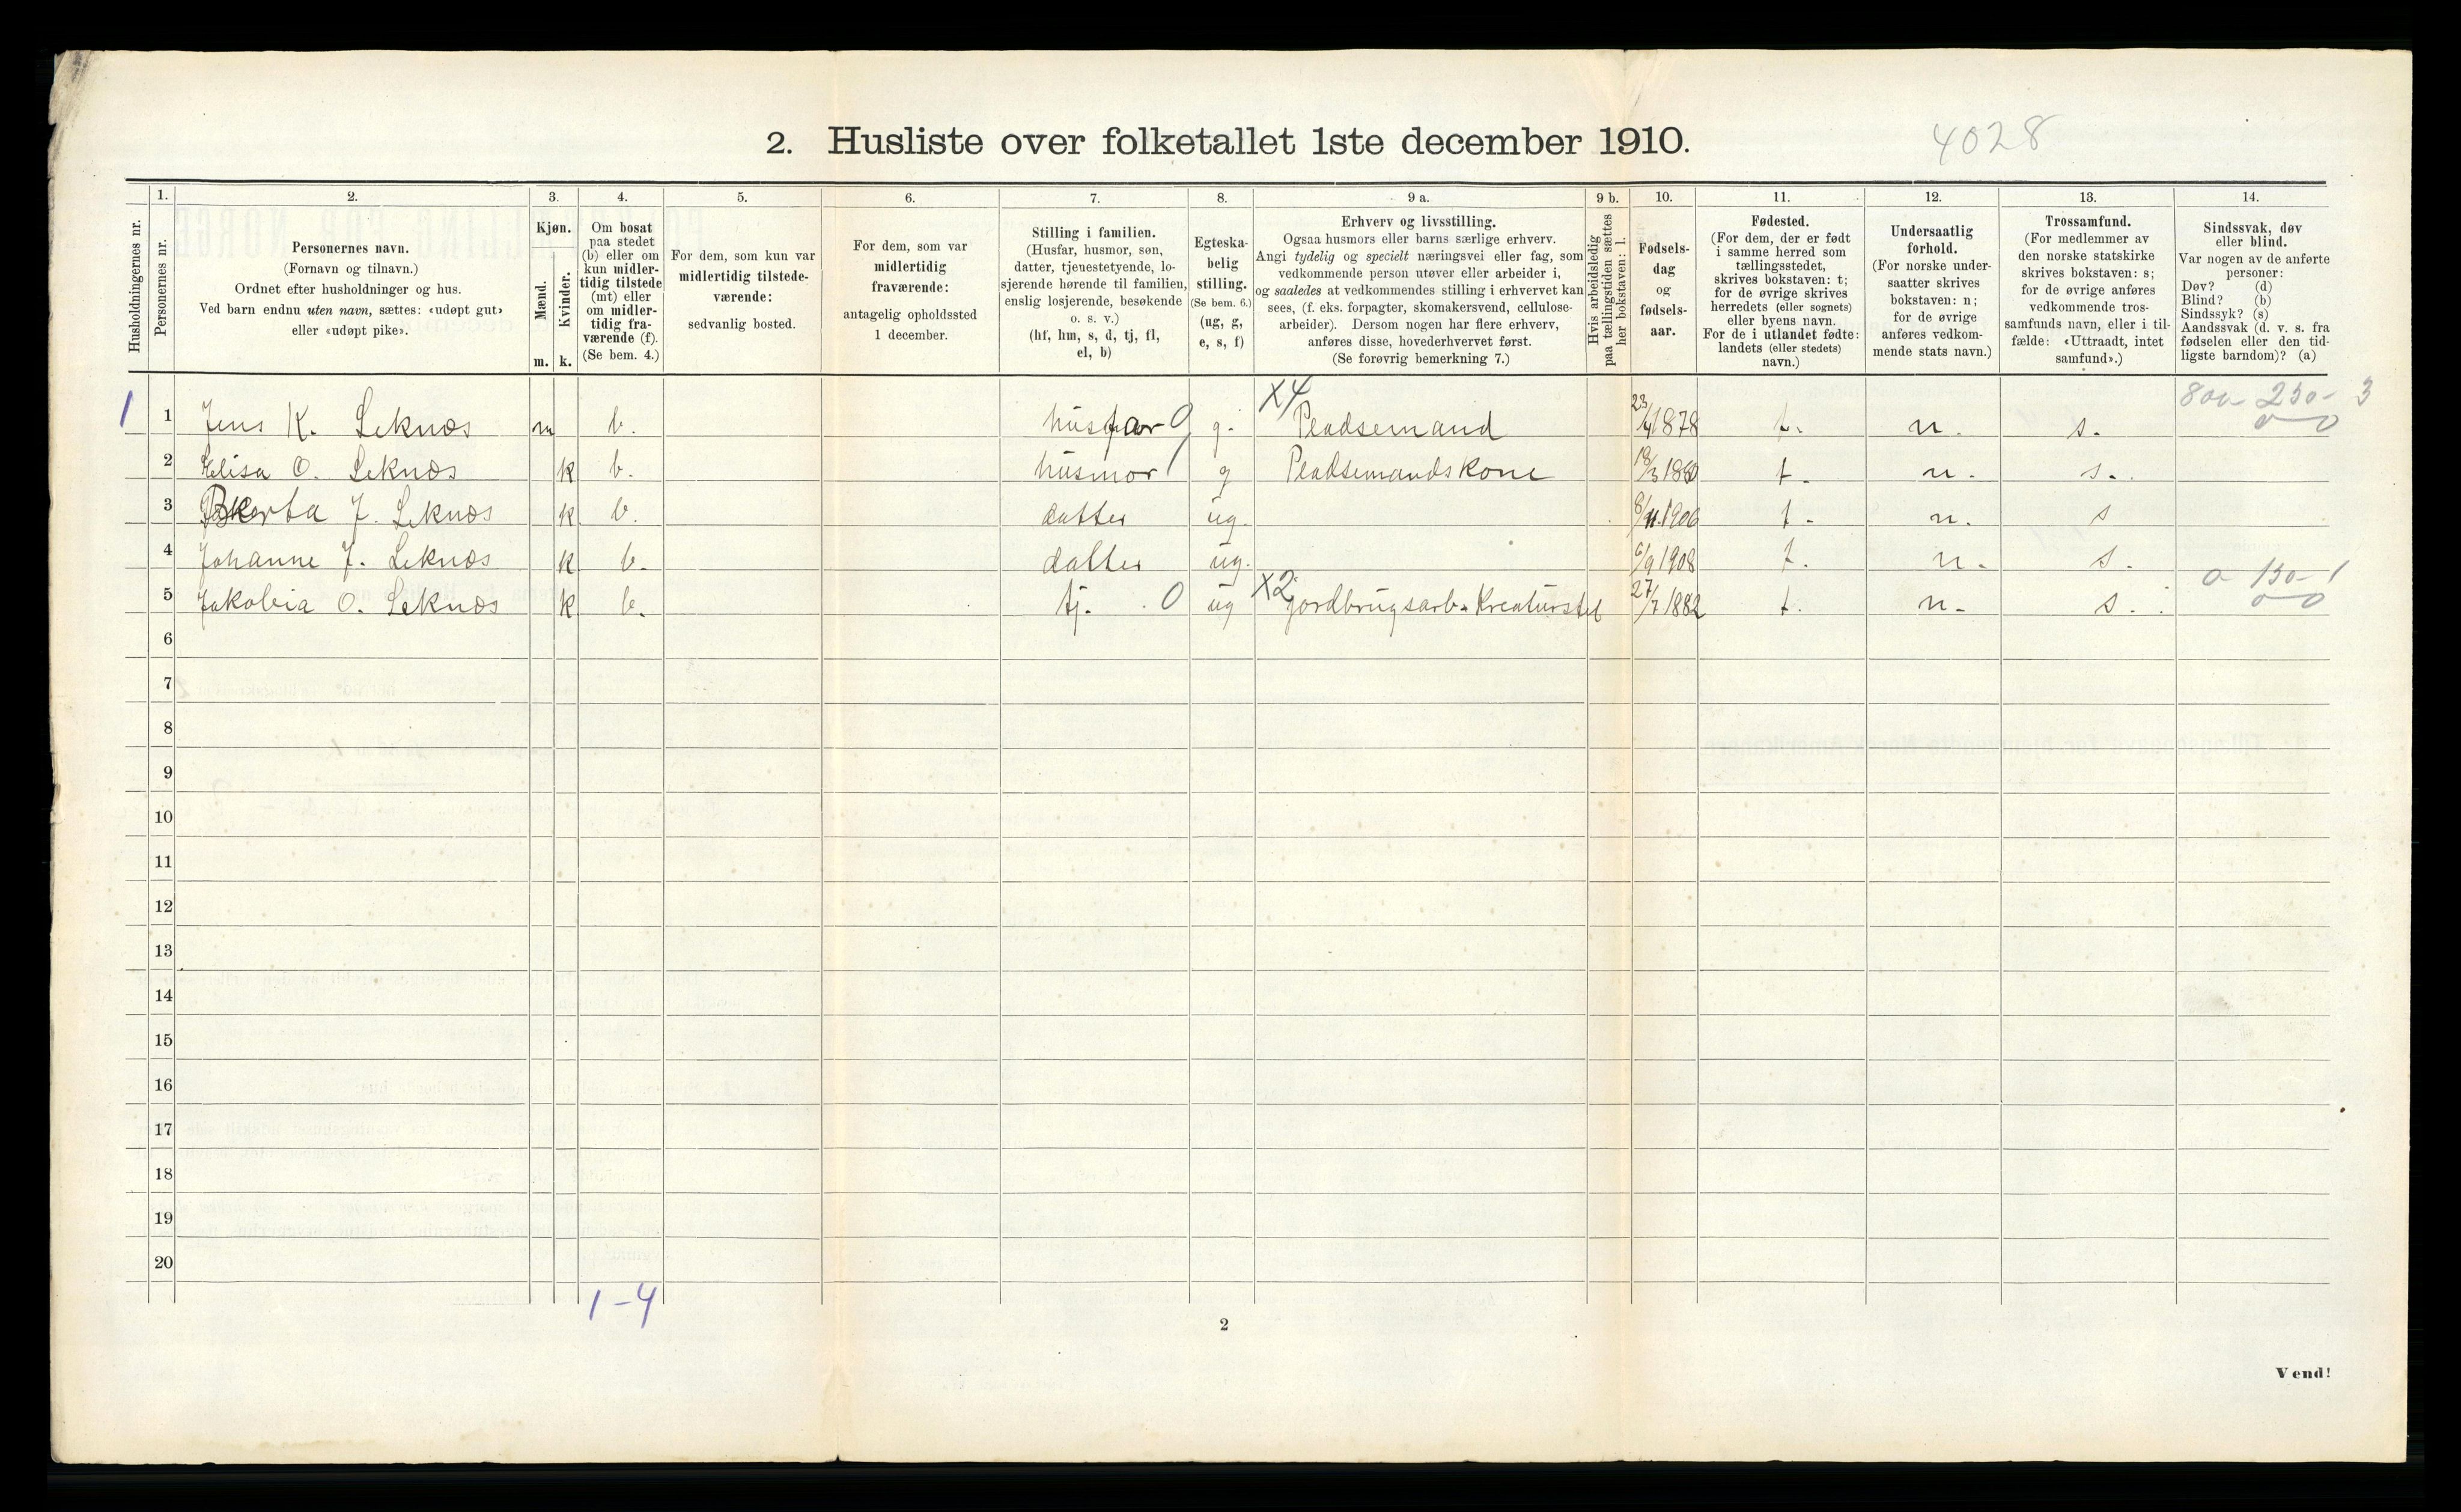 2. Husliste over folketallet 1ste december 1910.
4028
Husholdningernes nr.
1.
Personernes nr.
2.
Personernes navn.
(Fornavn og tilnavn.)
Ordnet efter husholdninger og hus.
Ved barn endnu uten navn, sættes: «udøpt gut»
eller «udøpt pike».
3.
Kjøn.
Mænd.
Kvinder.
m. k.
4.
Om bosat
paa stedet
(b) eller om
kun midler-
tidig tilstede
(mt) eller
om midler-
tidig fra-
værende (f).
(Se bem. 4.)
5.
For dem, som kun var
midlertidig tilstede-
værende:
sedvanlig bosted.
6.
For dem, som var
midlertidig
fraværende:
antagelig opholdssted
1 december.
7.
Stilling i familien.
(Husfar, husmor, søn,
datter, tjenestetyende, lo-
sjerende hørende til familien,
enslig losjerende, besøkende
o. s. v.)
(hf, hm, s, d, tj, fl,
el, b)
8.
Egteska-
belig
stilling.
(Se bem. 6.)
(ug, g,
e, s, f)
9 a.
Erhverv og livsstilling.
Ogsaa husmors eller barns særlige erhverv.
Angi tydelig og specielt næringsvei eller fag, som
vedkommende person utøver eller arbeider i,
og saaledes at vedkommendes stilling i erhvervet kan
sees, (f. eks. forpagter, skomakersvend, cellulose-
arbeider). Dersom nogen har flere erhverv,
anføres disse, hovederhvervet først.
(Se forøvrig bemerkning 7.)
9 b.
Hvis arbeidsledig
paa tællingstiden sættes
her bokstaven: l.
10.
Fødsels-
dag
og
fødsels-
aar.
11.
Fødested.
(For dem, der er født
i samme herred som
tællingsstedet,
skrives bokstaven: t;
for de øvrige skrives
herredets (eller sognets)
eller byens navn.
For de i utlandet fødte:
landets (eller stedets)
navn.)
12.
Undersaatlig
forhold.
(For norske under-
saatter skrives
bokstaven: n;
for de øvrige
anføres vedkom-
mende stats navn.)
13.
Trossamfund.
(For medlemmer av
den norske statskirke
skrives bokstaven: s;
for de øvrige anføres
vedkommende tros-
samfunds navn, eller i til-
fælde: «Uttraadt, intet
samfund».)
14.
Sindssvak, døv
eller blind.
Var nogen av de anførte
personer:
Døv? (d)
Blind? (b)
Sindssyk? (s)
Aandssvak (d. v. s. fra
fødselen eller den tid-
ligste barndom)? (a)
800- 250- 3
0 0
1 1 Jens K. Leknæs m b. husfar 0 g. X4 Pladsemand 23/4 1878 t. n. s.
2 Elisa O. Leknæs k b. husmor 1 g Pladsemandskone 18/3 1880 t. n. s.
3 Berta J. Leknæs k b. datter ug. 8/11 1906 t. n. s
4 Johanne J. Leknæs k b. datter ug. 6/9 1908 t. n. s.
0 150- 1
0 0
5 Jakobia O. Leknæs k b. tj. 0 ug X2 jordbrugsarb. Kreaturstel 27/7 1882 t. n. s.
6
7
8
9
10
11
12
13
14
15
16
17
18
19
20
1-4
2
Vend!